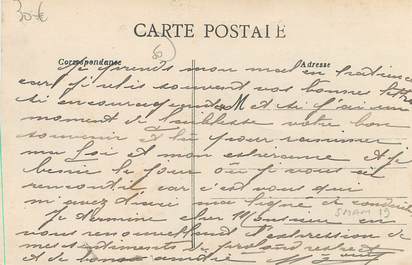 30 €
60
CARTE POSTALE
Correspondance Adresse
Je prends mon mal en patience
car je lis souvent vos bonnes lettres
si encourageantes et si j'ai un
moment de faiblesse votre bon
souvenir est là pour ranimer
ma foi et mon espérance et je
bénis le jour où je vous ai
rencontré car c'est vous qui
m'avez ma ligne de conduite
Je termine cher Monsieur en
vous renouvellant l'expression de
mes sentiments de profond respect
et de bonne amitié